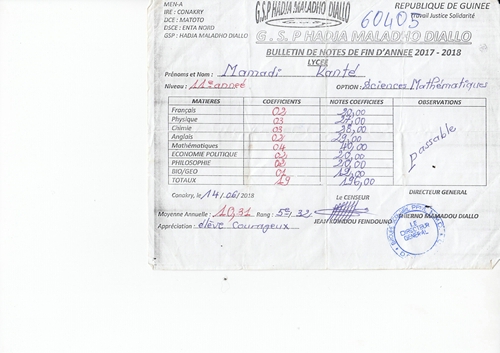 MEN-A
IRE : CONAKRY
DCE : MATOTO
DSCE : ENTA NORD
GSP : HADJA MALADHO DIALLO
G.S.P HADJA MALADHO DIALLO
REPUBLIQUE DE GUINEE
Travail Justice Solidarité
60405
G . S . P HADJA MALADHO DIALLO
BULLETIN DE NOTES DE FIN D'ANNEE 2017 - 2018
LYCEE
Prénoms et Nom : Mamadi Kanté
Niveau : 11ème année OPTION : Sciences Mathématiques
MATIERES COEFFICIENTS NOTES COEFFICIEES OBSERVATIONS
Français 02
Physique 03 27,00
Chimie 03 28,00
Anglais 02
Mathématiques 04 40,00
ECONOMIE POLITIQUE 02 20,00
PHILOSOPHIE 02 20,00
BIO/GEO 01 12,00
TOTAUX 19 196,00
passable
Conakry, le 14/06/2018
DIRECTEUR GENERAL
Le CENSEUR
Moyenne Annuelle : 10,31 Rang : 5e/32
JEAN FEINDOUNO
THIERNO MAMADOU DIALLO
LE DIRECTEUR GENERAL
Appréciation : élève Courageux